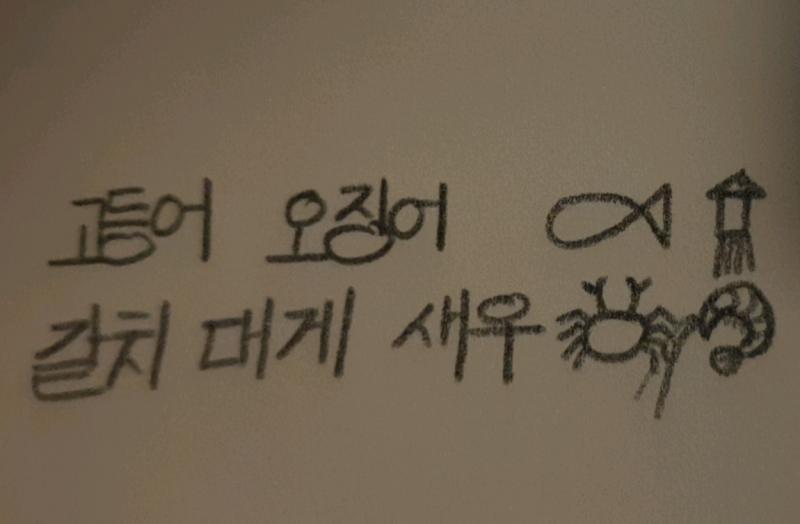 고등어 오징어
갈치 대게 새우